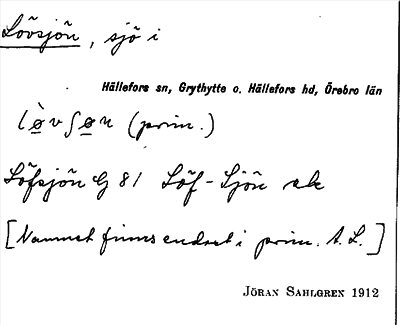 Lövsjön, sjö i
Hällefors sn, Grythytte o. Hällefors hd, Örebro län
lø̀vʃøn (prim.)
Löfsjön G 81 Löf-Sjön
[Namnet finns endast i prim. A.L.]
JÖRAN SAHLGREN 1912